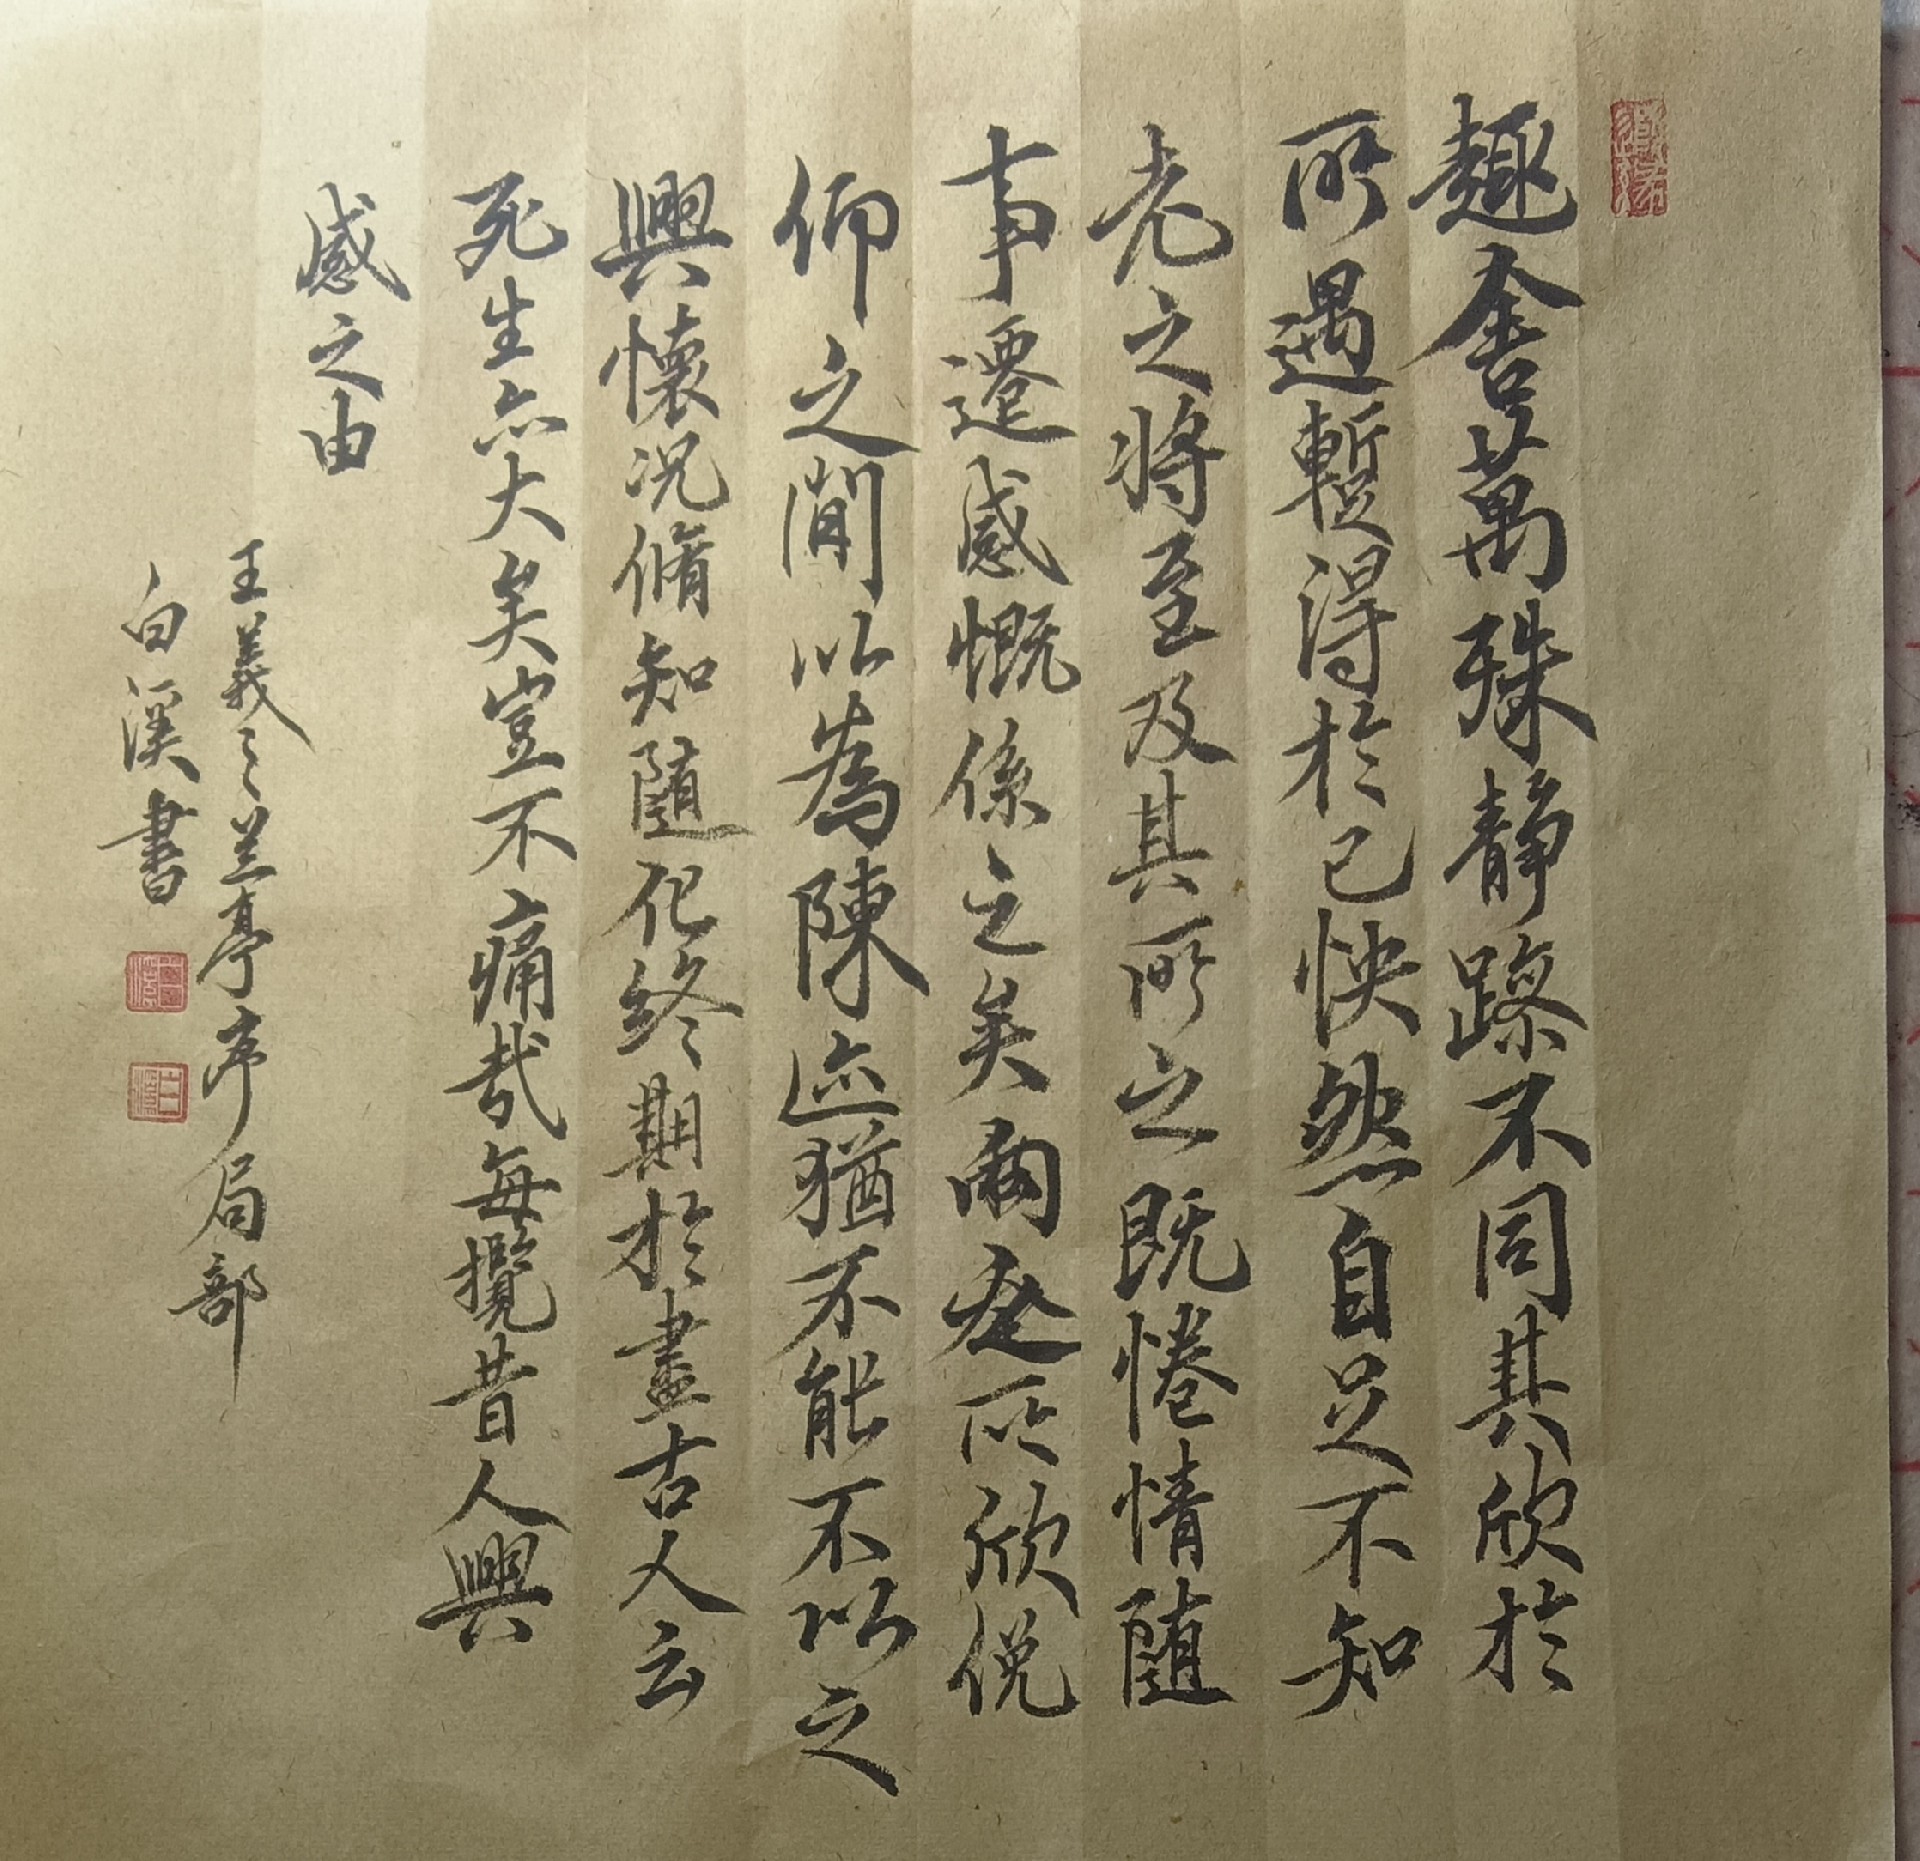 趣舍萬殊静躁不同其欣於
所遇暫得於己怏然自足不知
老之將至及其所之既惓情隨
事遷感慨係之矣向之所欣俛
仰之閒以為陳迹猶不能不以之
興懷况脩知随化終期於盡古人云
死生亦大矣豈不痛哉每攬昔人興
感之由
王羲之兰亭序局部
白溪書